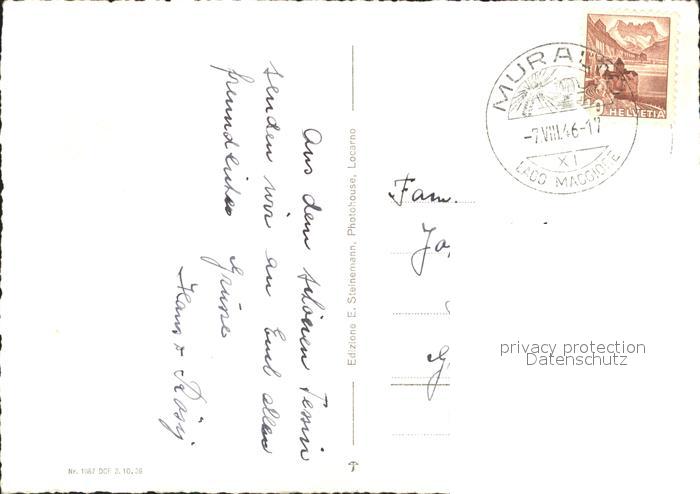 Aus dem schönen Tessin
senden wir an Euch allen
freundliche Grüsse
Hans + Rösy
Edizione E. Steinemann, Photohouse, Locarno
Nr. 1987 DCF 2. 10. 39
MURALTO
-7.VIII.46-17
XI
LAGO MAGGIORE
HELVETIA
Fam.
privacy protection
Datenschutz